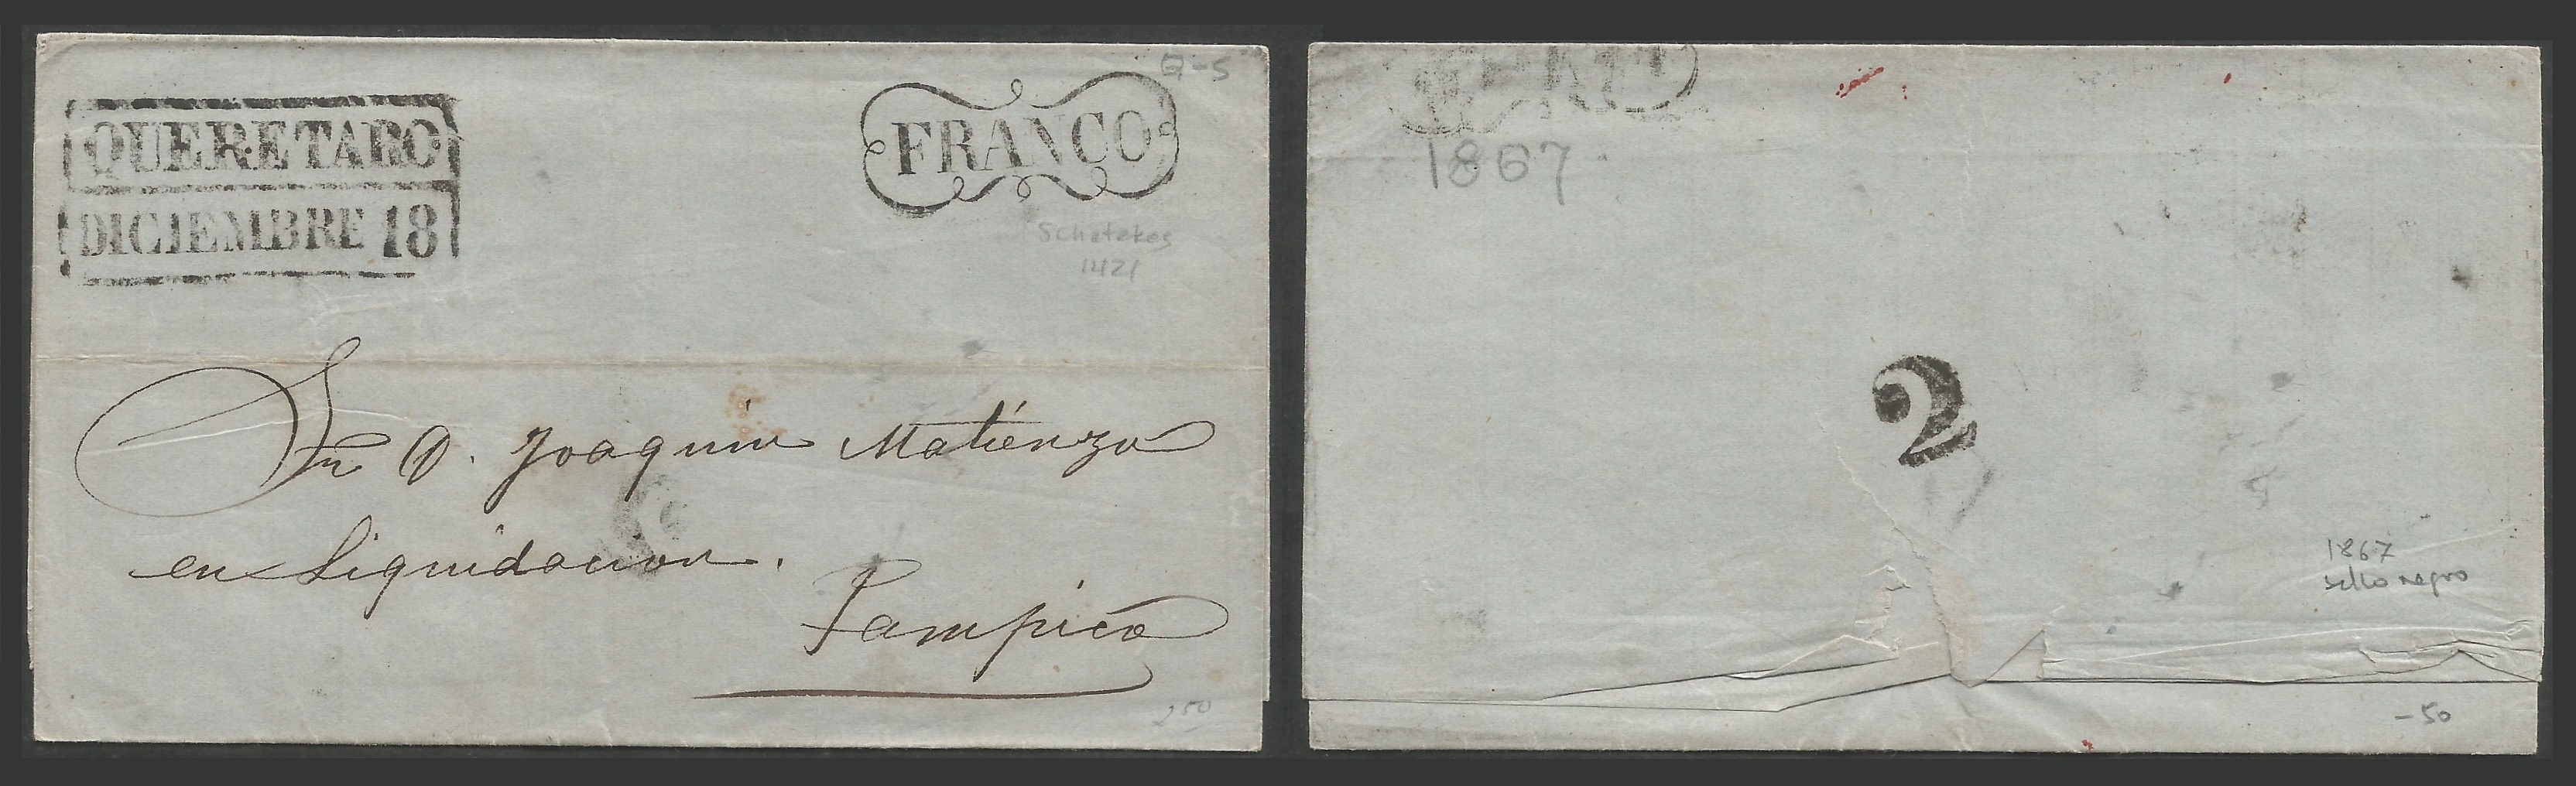 Q-5
QUERETARO
FRANCO
DICIEMBRE 18
Schatzkes
1421
Sr D. Joaquin Matienzo
en Liquidacion.
Tampico
250
1867
2
1867
sello negro
-50